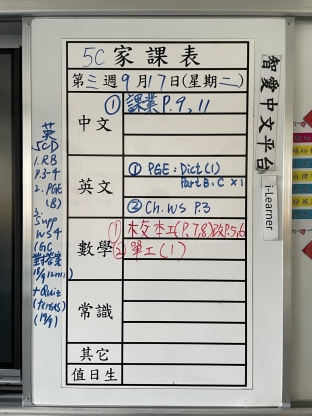 5C 家課表
第三週9月17日(星期二)
中文
① 課業P.9, 11
英文
① PGE: Dict(1)
Part B, C x1
② Ch. WS P.3
數學
① 校本工(P.7,8)改P.5,6
② 單工(1)
常識
其它
值日生
智愛中文平台
i-Learner
英
5CD
1. RB
P.3-4
2. PGE
(B)
3. Supp
WS 4
(GC
對答案
+ Quiz
(tenses)
(19/9)